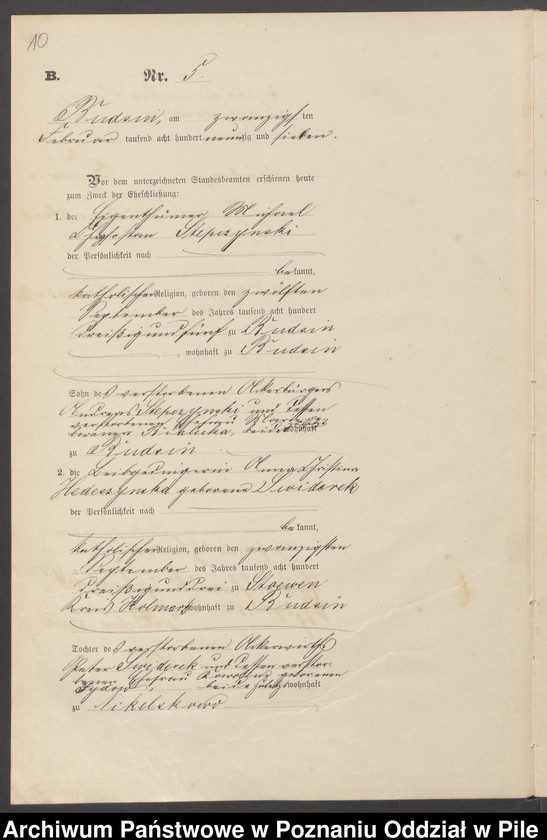 10
B. Nr. 5.
Budsin, am zwanzigsten
Februar tausend acht hundert neunzig und sieben.
Vor dem unterzeichneten Standesbeamten erschienen heute
zum Zweck der Eheschließung:
1. der Eigenthümer Michael
Stepczynski
der Persönlichkeit nach
bekannt,
katholischer Religion, geboren den zwölften
September des Jahres tausend acht hundert
dreißig und fünf zu Budsin
, wohnhaft zu Budsin
Sohn des verstorbenen Ackerbürgers
Andreas Stepczynski und dessen
verstorbenen Ehefrau
borenen beide wohnhaft
zu Budsin
2. die Leibgedingerin Anna Christina
Hedeszynska geborene Swiderek
der Persönlichkeit nach
bekannt,
katholischer Religion, geboren den zwanzigsten
September des Jahres tausend acht hundert
dreißig und drei zu Stoewen
Kreis Kolmar wohnhaft zu Budsin
Tochter des verstorbenen Ackerwirths
Peter Swiderek und dessen verstor-
benen Ehefrau geborenen
beide zuletzt wohnhaft
zu Nikelskowo
Archiwum Państwowe w Poznaniu Oddział w Pile